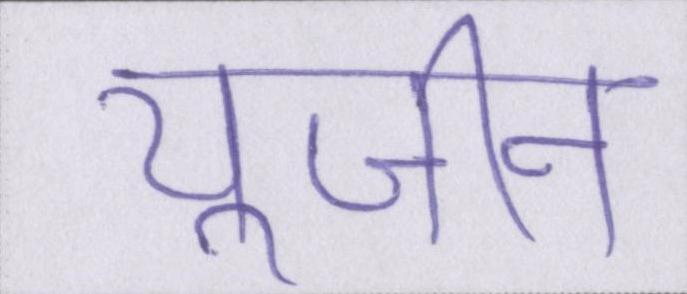 यूजीन